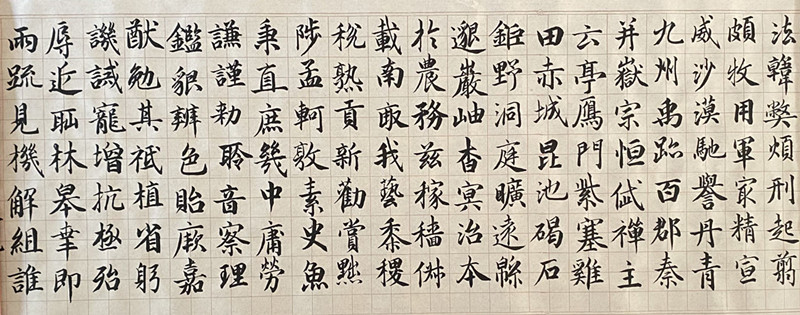 法韓弊煩刑起翦
頗牧用軍冣精宣
威沙漠馳譽丹青
九州禹跡百郡秦
并嶽宗恒岱禪主
云亭鴈門紫塞雞
田赤城昆池碣石
鉅野洞庭曠遠緜
邈巖岫杳冥治本
於農務茲稼穡俶
載南畝我藝黍稷
稅熟貢新勸賞黜
陟孟軻敦素史魚
秉直庶幾中庸勞
謙謹勑聆音察理
鑑貌辨色貽厥嘉
猷勉其祗植省躬
譏誡寵增抗極殆
辱近耻林皋幸即
兩疏見機解組誰